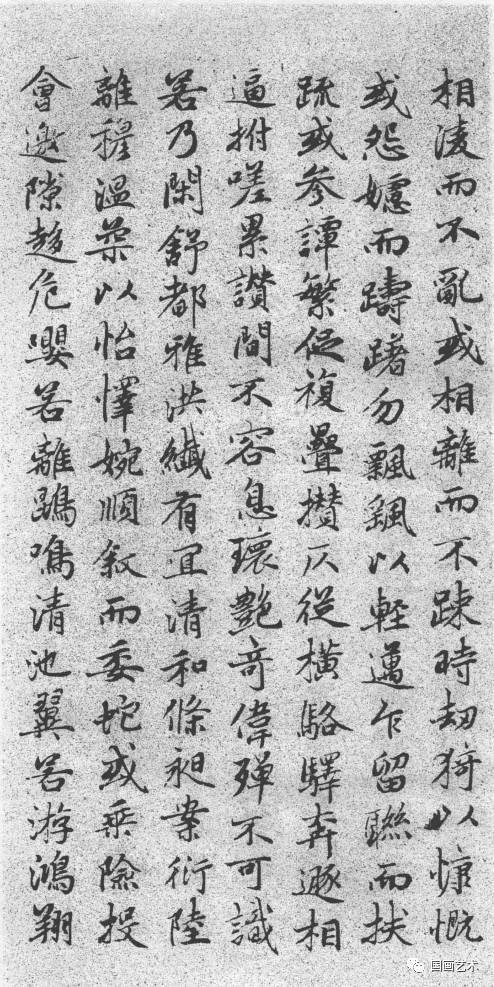 相凌而不亂或相離而不踈時劫猗以慷慨
或怨而躊躇勿飄颻以輕邁乍留聯而扶
疏或參譚繁促複疊攢仄從橫駱驛奔遯相
逼拊嗟累讚間不容息瓌艷奇偉殫不可識
若乃閑舒都雅洪纖有宜清和條昶案衍陸
離穆溫柔以怡懌婉順敘而委蛇或乘險投
會邀隙趍危嚶若離鵾鳴清池翼若游鴻翔
国画艺术